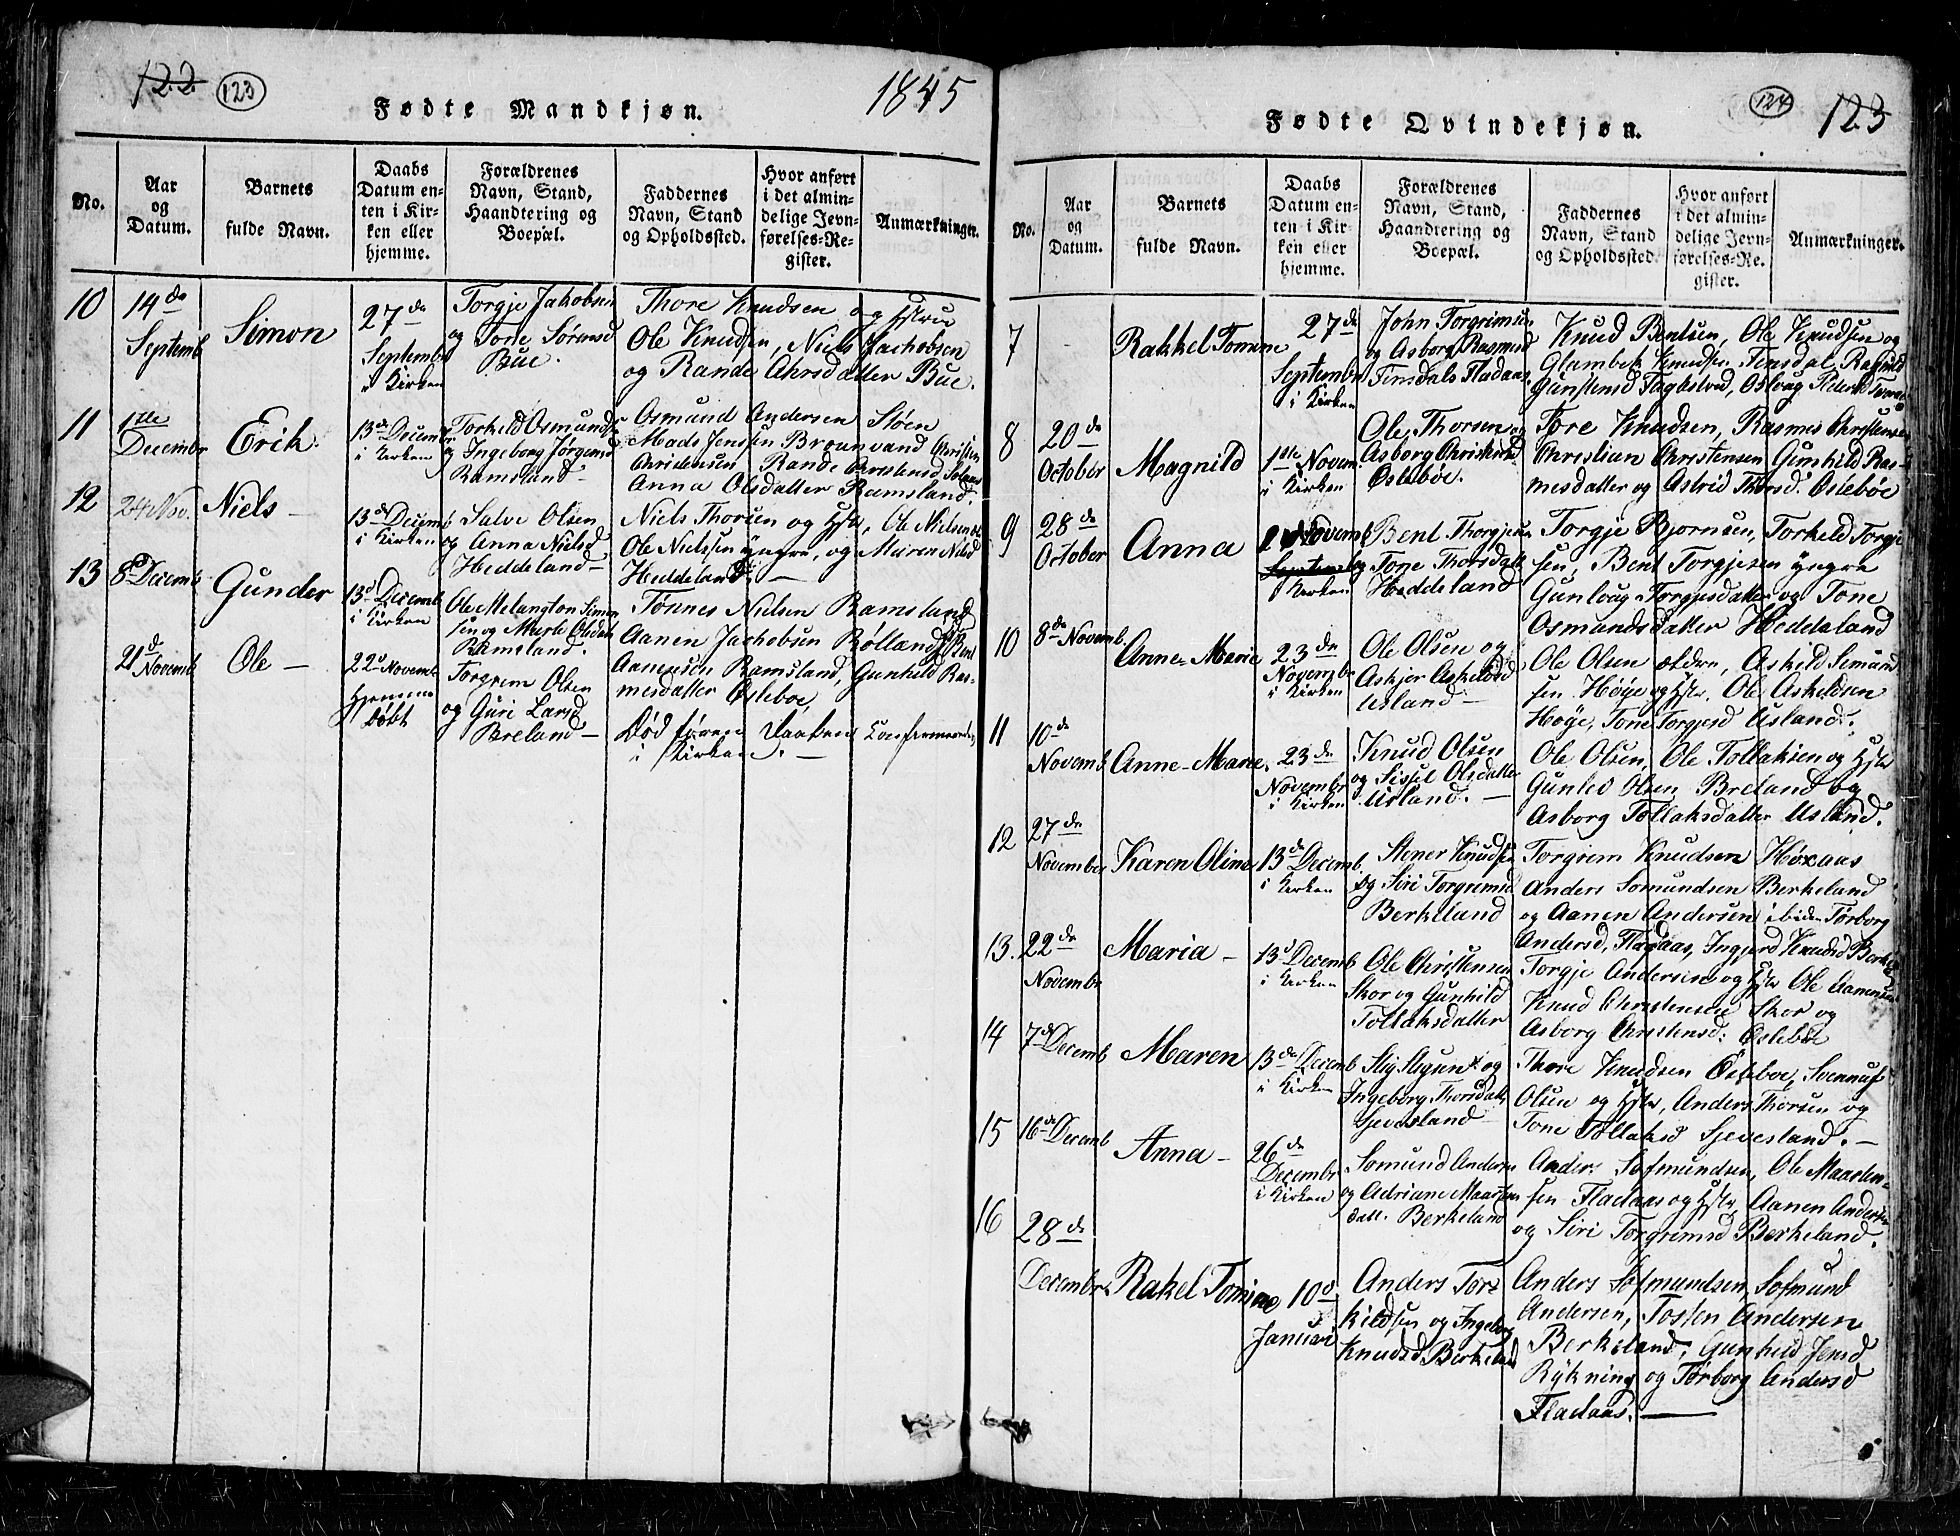 122 123
1845
Fødte Mandkjøn.
No.
Aar og Datum.
Barnets fulde Navn.
Daabs Datum enten i Kirken eller hjemme.
Forældrenes Navn, Stand, Haandtering og Boepæl.
Faddernes Navn, Stand og Opholdssted.
Hvor anført i det almindelige Jevnførelses-Register.
Anmærkninger.
10
14de
Septemb
Simon
27de
Septembr
i Kirken
Torgje Jakobsen
og Tone Sørensd
Bue.
Thore Knudsen og Hstrue
Ole Knudsen, Niels Jachobsen
og Rande Ahrsdatter Bue.
11
1ste
Decembr
Erik.
13de Decembr
i Kirken
Torkeld Osmundsen
og Ingeborg Jørgensd
Ramsland
Osmund Andersen Støen
Mads Jensen Brounvand Christen
Christensen Rande Christensd
Anna Olsdatter Ramsland.
12
24 Nov.
Niels
13de Decemb
i Kirken
Salve Olsen
og Anna Nielsd
Heddeland
Niels Thorsen og Hstr, Ole Nielsen
Ole Nielssen yngre, og Maren Nielsd
Heddeland.
13
8de Decemb
Gunder
13d Decemb
i Kirken
Ole Melangton Simon
sen og Marte Olsdatt
Ramsland.
Tønnes Nielsen Ramsland
Aanen Jachobsen Bølland,
Aanensen Ramsland, Gunhild Ras-
mesdatter Osleboe,
21de
Novemb
Ole
22d Novemb
Hjemme
døbt
Torgrem Olsen
og Guri Larsd
Breland
Død føren Daaben Confirmeredes
i Kirken.
124 123
Fødte Qvindekjøn.
No.
Aar og Datum.
Barnets fulde Navn.
Daabs Datum enten i Kirken eller hjemme.
Forældrenes Navn, Stand, Haandtering og Boepæl.
Faddernes Navn, Stand og Opholdssted.
Hvor anført i det almindelige Jevnførelses-Register.
Anmærkninger.
7
Rakkel Tomine
27de
Septembr
i Kirken
John Torgrimsen
og Asborg Rasmusd
Tinsdals Fladaas
Knud Bentsen, Ole Knudsen og
Glambek Knudsen, Tinsdal, Ragnild
Gunstensd Fagdstved, Oslvag Pedersd
8
20de
October
Magnild
1ste Novem
i Kirken
Ole Thorsen og
Asborg Christensd
Oslebøe.
Tore Knudsen, Rasmes Christensen
Christian Christensen Gunhild Ras-
mesdatter og Astrid Thorsd. Oslebøe
9
28de
October
Anna
2 Novemb
Septemb
i Kirken
Bent Thorgjesen
og Tone Thorsdatt
Heddeland
Torgje Bjornsen, Torkeld Torgje
sen, Bent Torgjesen yngre
Gunlvag Torgjesdatter og Tone
Osmundsdatter Heddeland
10
8de Novemb
Anne-Marie
23de
Novembr
i Kirken
Ole Olsen og
Askjer Askeldsd
Usland
Ole Olsen ældre, Askild Semund
sen Høye og Hstr. Ole Askeldsen
Høye, Tone Torgjesd Usland.
11
10de
Novemb
Anne-Marie.
23de
Novembr
i Kirken
Knud Olsen
og Sissel Olsdatter
Usland.
Ole Olsen, Ole Tollaksen og Hstr
Gunled Olsen Breland og
Asborg Tollaksdatter Usland.
12
27de
November
Karen Oline
13de Decemb.
i Kirken
Stener Knudsen
og Siri Torgremsd
Berkeland
Torgrem Knudsen Høxaas
Anders Somundsen Berkeland
og Aanen Andersen ibiden Tørborg
Andersd, Fladaas, Ingjerd Knudsd Berkel
13.
22de
Novembr
Maria
13d Decemb
i Kirken
Ole Christensen
Skor og Gunhild
Tollaksdatter
Torgje Andersen og Hstr Ole Aanensen
Knud Christensen Skor og
Asborg Christensd: Oslebøe
14
7de Decemb
Maren
13de Decemb
i Kirken
Stig Sigurds og
Ingeborg Thorsdatt
Sjevesland
Thore Knudsen Osleboe, Svennuf
Olsen og Hstr, Anders Thorsen og
Tone Tollaksd Sjevesland.
15
16de Decemb
Anna
26de
Decembr
i Kirken
Somund Anders
og Adriane Maarten
datt. Berkeland
Anders Sofmundsen, Ole Maarten-
sen Fladaas og Hstr, Aanen Andersen
og Siri Torgremsd Berkeland.
16
28de
Decembr
Rakel Tomine
10d
Januari
Anders Tor
kildsen og Ingebor
Knudsd Berkeland
Anders Sofmundsen, Sofmund
Andersen, Tosten Andersen
Berkeland, Gunheld Jensd
Rykning og Tørborg Andersd
Fladaas.